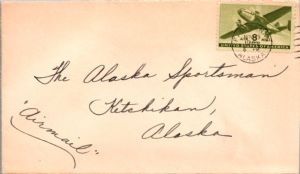 8
UNITED STATES OF AMERICA
ALASKA
The Alaska Sportsman
Ketchikan,
Alaska
"Airmail"